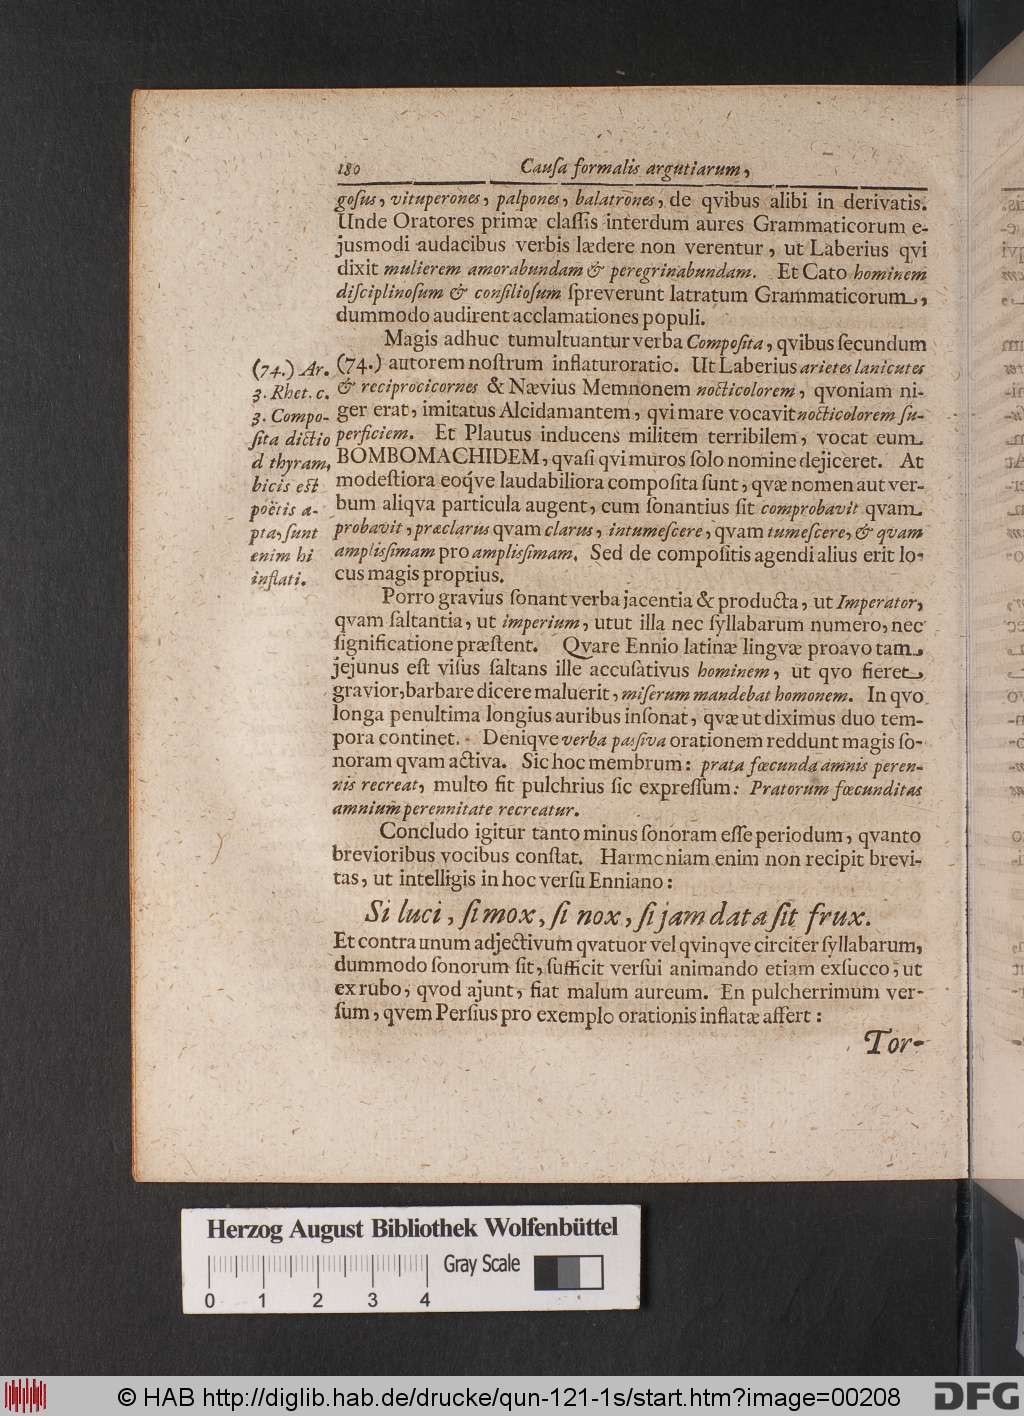 180 Cauſa formalis argutiarum,
goſus, vituperones, palpones, balatrones, de qvibus alibi in derivatis.
Unde Oratores primæ claſſis interdum aures Grammaticorum e-
jusmodi audacibus verbis lædere non verentur, ut Laberius qvi
dixit mulierem amorabundam & peregrinabundam. Et Cato hominem
diſciplinoſum & conſilioſum ſpreverunt latratum Grammaticorum,
dummodo audirent acclamationes populi.
Magis adhuc tumultuantur verba Compoſita, qvibus ſecundum
(74.) autorem noſtrum inflaturoratio. Ut Laberius arietes lanicutes
& reciprocicornes & Nævius Memnonem nocticolorem, qvoniam ni-
ger erat, imitatus Alcidamantem, qvi mare vocavit nocticolorem ſu-
perficiem. Et Plautus inducens militem terribilem, vocat eum
BOMBOMACHIDEM, qvaſi qvi muros ſolo nomine dejiceret. At
modeſtiora eoq́ve laudabiliora compoſita ſunt, qvæ nomen aut ver-
bum aliqva particula augent, cum ſonantius ſit comprobavit qvam
probavit, præclarus qvam clarus, intumeſcere, qvam tumeſcere, & qvam
amplisſimam pro amplisſimam. Sed de compoſitis agendi alius erit lo-
cus magis proprius.
(74.) Ar.
3. Rhet. c.
3. Compo-
ſita dictio
d thyram,
bicis eſt
poëtis a-
pta, ſunt
enim hi
inflati.
Porro gravius ſonant verba jacentia & producta, ut Imperator,
qvam ſaltantia, ut imperium, utut illa nec ſyllabarum numero, nec
ſignificatione præſtent. Qvare Ennio latinæ lingvæ proavo tam
jejunus eſt viſus ſaltans ille accuſativus hominem, ut qvo fieret
gravior, barbare dicere maluerit, miſerum mandebat homonem. In qvo
longa penultima longius auribus inſonat, qvæ ut diximus duo tem-
pora continet. Deniqve verba pasſiva orationem reddunt magis ſo-
noram qvam activa. Sic hoc membrum: prata fœcunda amnis peren-
nis recreat, multo fit pulchrius ſic expreſſum: Pratorum fœcunditas
amnium perennitate recreatur.
Concludo igitur tanto minus ſonoram eſſe periodum, qvanto
brevioribus vocibus conſtat. Harmoniam enim non recipit brevi-
tas, ut intelligis in hoc verſu Enniano:
Si luci, ſi mox, ſi nox, ſi jam data ſit frux.
Et contra unum adjectivum qvatuor vel qvinqve circiter ſyllabarum,
dummodo ſonorum ſit, ſufficit verſui animando etiam exſucco, ut
ex rubo, qvod ajunt, fiat malum aureum. En pulcherrimum ver-
ſum, qvem Perſius pro exemplo orationis inflatæ affert:
Tor-
Herzog August Bibliothek Wolfenbüttel
Gray Scale
0 1 2 3 4
© HAB http://diglib.hab.de/drucke/qun-121-1s/start.htm?image=00208
DFG